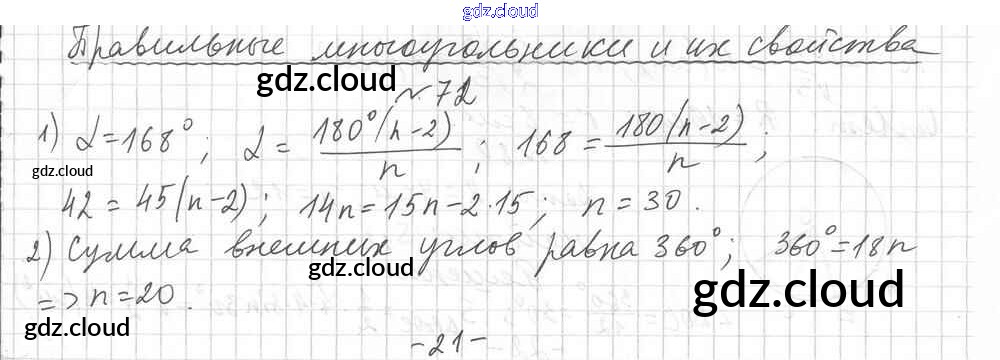 gdz.cloud
gdz.cloud
Правильные многоугольники и их свойства
gdz.cloud
№ 72
1) α=168°; α = 180°(n-2)/n; 168 = 180(n-2)/n;
gdz.cloud
42 = 45(n-2); 14n=15n-2·15; n=30.
2) Сумма внешних углов равна 360°; 360°=18n
gdz.cloud
=> n=20.
gdz.cloud
gdz.cloud
gdz.cloud
-21-